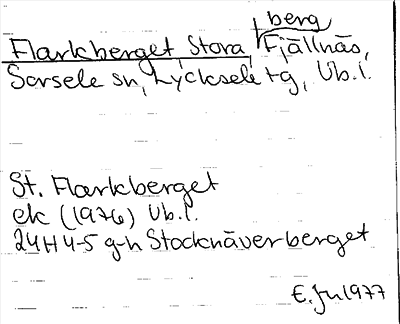 berg
Flarkberget, Stora, Fjällnäs,
Sorsele sn, Lycksele tg, Vb.l.
St. Flarkberget
ek (1976) Vb.l.
24H 4-5 g-h Stocknäverberget
E.Ju 1977